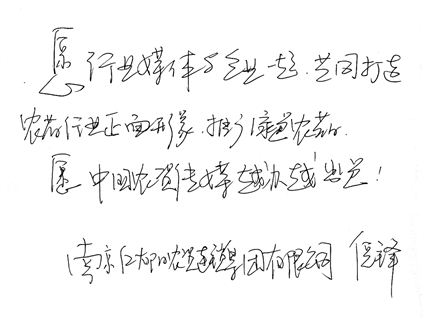 愿行业媒体与企业一起,共同打造
农药行业正面形象,推广绿色农药。
愿中国农资传媒越办越出色!
南京红太阳农资连锁集团有限公司